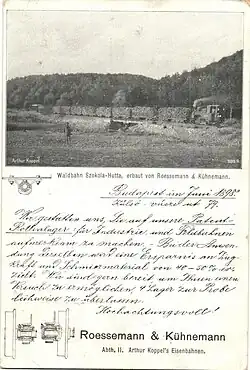 Arthur Koppel
Waldbahn Szokola-Hutta, erbaut von Roessemann & Kühnemann.
Budapest im Juni 1898
Külső - váczi út 79.
Wir gestatten uns, Sie auf unsere Patent-
Rollenlager für Industrie und Feldbahnen
aufmerksam zu machen. - Bei der Anwen-
dung derselben wird eine Ersparnis an Zug-
kraft und Schmiermaterial von 40-50% er-
zielt. Wir sind gern bereit um Ihnen einen
Versuch zu ermöglichen, 4 Lager zur Probe
leihweise zu überlassen.
Hochachtungsvoll!
Roessemann & Kühnemann
Abth. II. Arthur Koppel's Eisenbahnen.